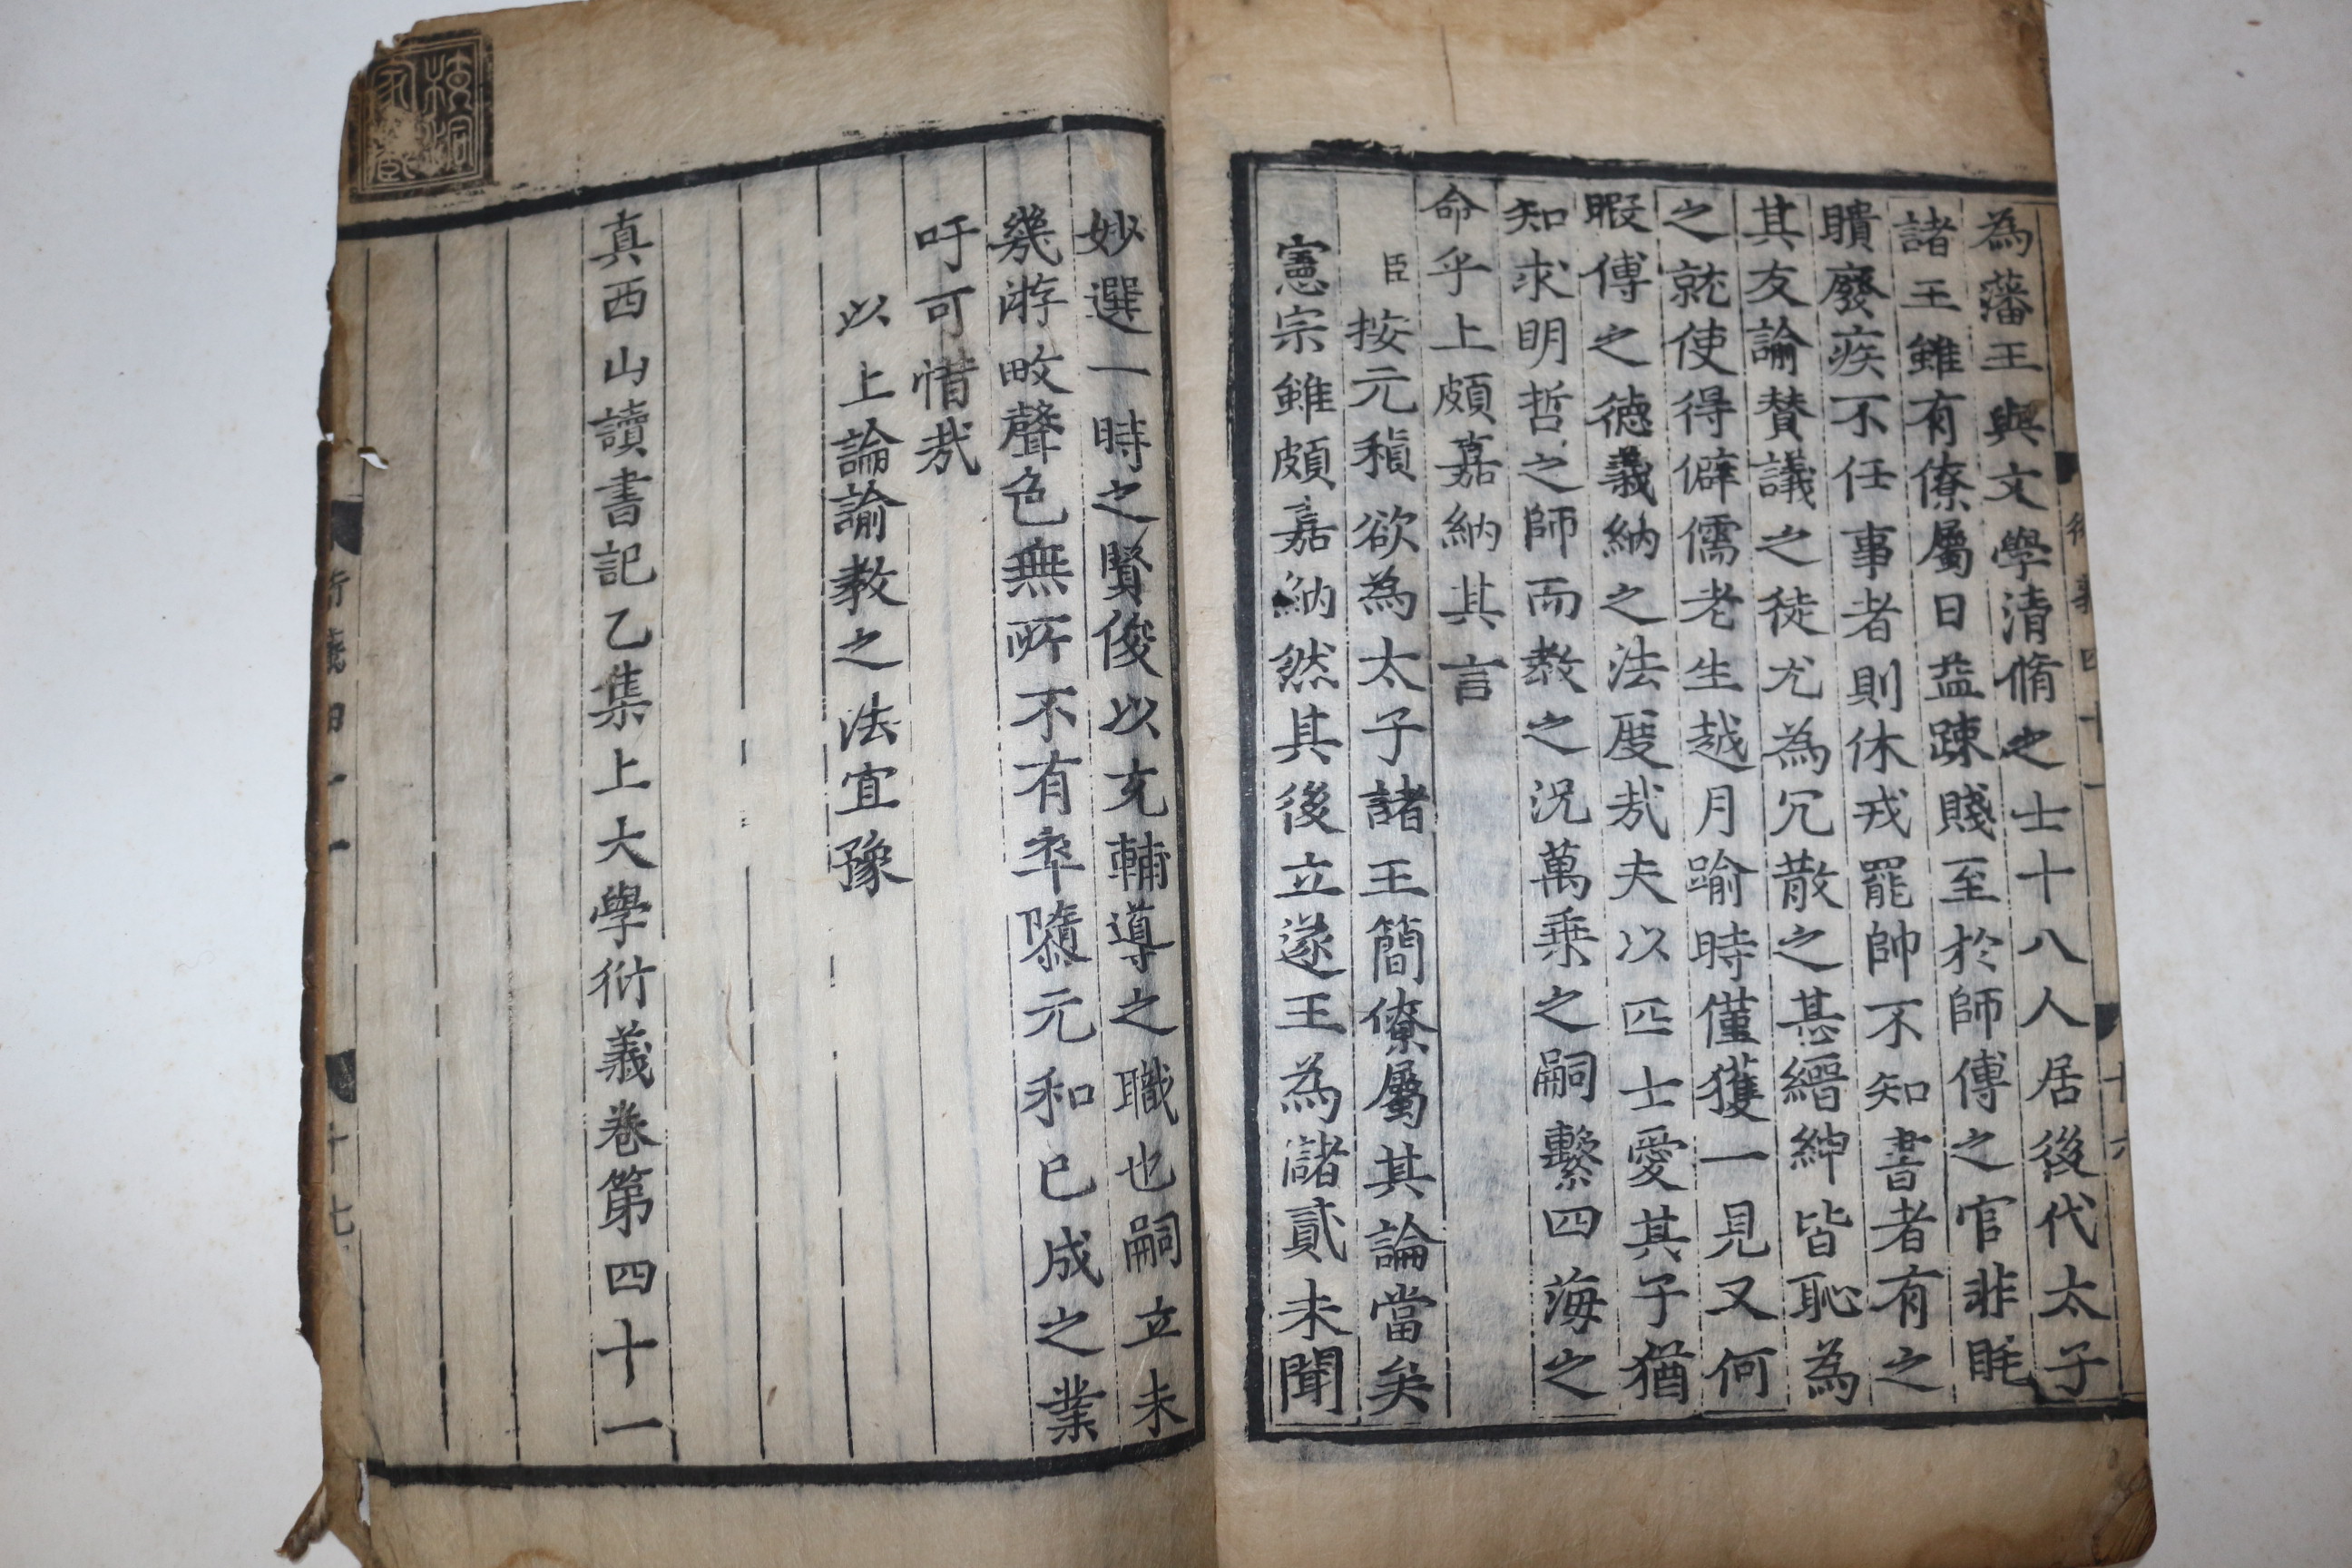 為藩王與文學清脩之士十八人居後代太子
諸王雖有僚屬日益踈賤至於師傅之官非眊
聵廢疾不任事者則休戎罷帥不知書者有之
其友諭賛議之徒尤為冗散之甚縉紳皆恥為
之就使得僻儒老生越月踰時僅獲一見又何
暇傅之德義納之法度㢤夫以匹士愛其子猶
知求明哲之師而教之况萬乗之嗣繫四海之
命乎上頗嘉納其言
臣按元稹欲為太子諸王簡僚屬其論當矣
憲宗雖頗嘉納然其後立遂王為儲貳未聞
妙選一時之賢俊以充輔導之職也嗣立未
幾游畋聲色無所不有卒隳元和已成之業
吁可惜㢤
以上論諭教之法宜豫
真西山讀書記乙集上大學衍義卷第四十一
衍義四十一
十七